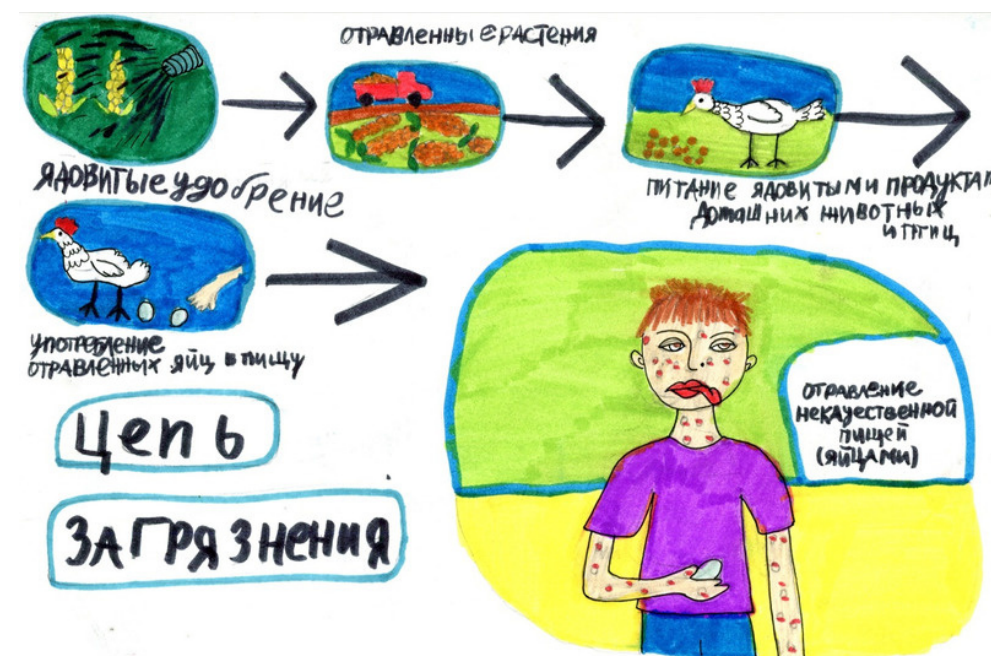 ОТРАВЛЕННЫЕ РАСТЕНИЯ
ЯДОВИТЫЕ удобрение
ПИТАНИЕ ЯДОВИТЫМИ ПРОДУКТАМ
ДОМАШНИХ ЖИВОТНЫХ
И ПТИЦ
УПОТРЕБЛЕНИЕ
ОТРАВЛЕННЫХ ЯИЦ В ПИЩУ
ОТРАВЛЕНИЕ
НЕКАЧЕСТВЕННОЙ
ПИЩЕЙ
(ЯЙЦАМИ)
Цепь
ЗАГРЯЗНЕНИЯ